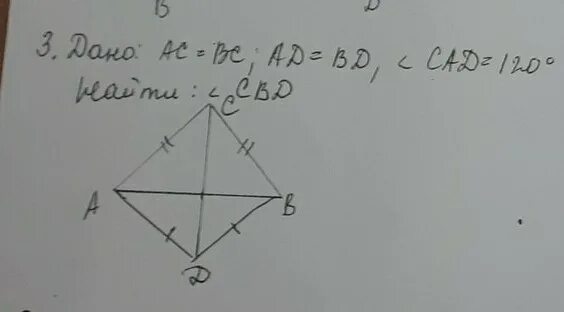 В D
3. Дано: AC = BC; AD = BD, < CAD = 120°
Найти: < CBD
C
A B
D